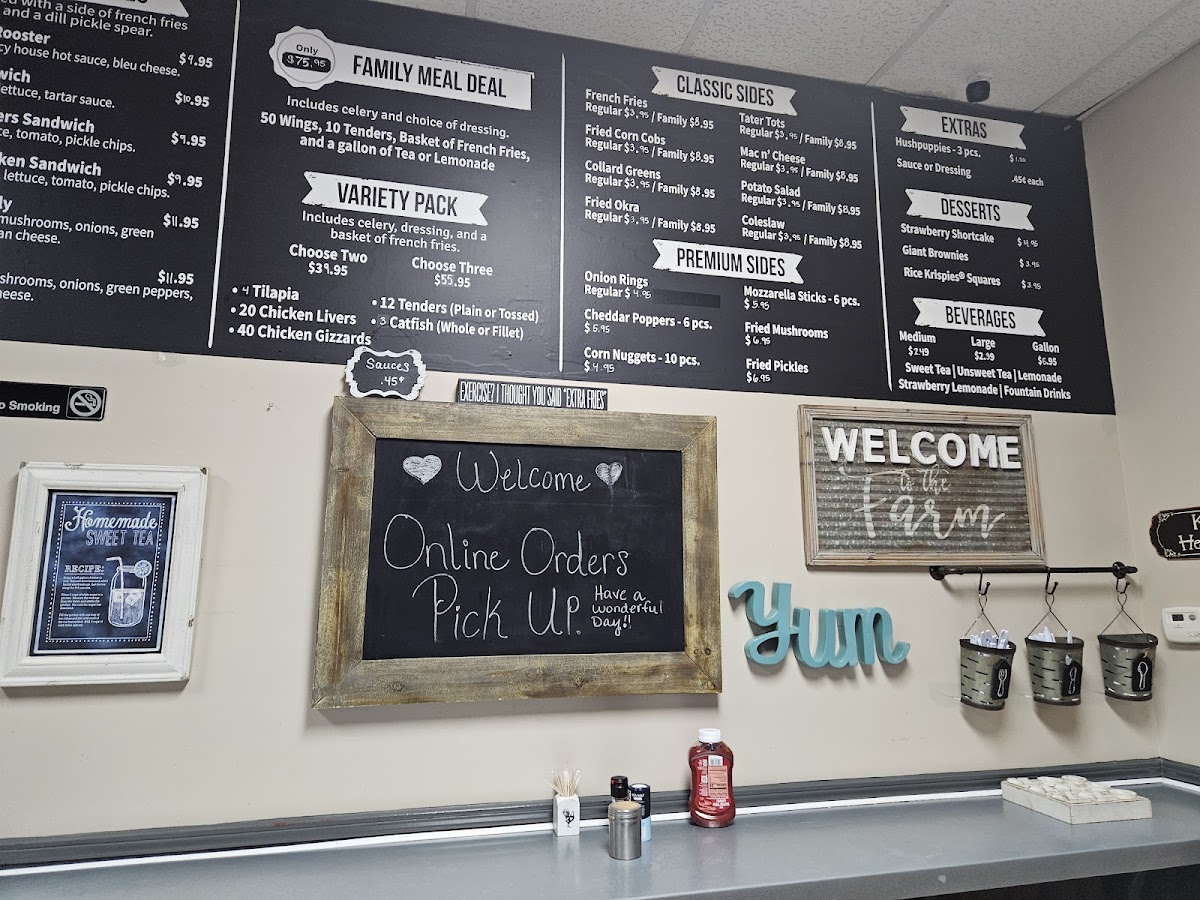 ed with a side of french fries
and a dill pickle spear.
Rooster
cy house hot sauce, bleu cheese. $9.95
wich
ettuce, tartar sauce. $10.95
ers Sandwich
ce, tomato, pickle chips. $9.95
ken Sandwich
lettuce, tomato, pickle chips. $9.95
ly
mushrooms, onions, green $11.95
an cheese.
$11.95
shrooms, onions, green peppers,
heese.
Only
$75.95
FAMILY MEAL DEAL
Includes celery and choice of dressing.
50 Wings, 10 Tenders, Basket of French Fries,
and a gallon of Tea or Lemonade
VARIETY PACK
Includes celery, dressing, and a
basket of french fries.
Choose Two
$39.95
Choose Three
$55.95
• 4 Tilapia
• 20 Chicken Livers
• 40 Chicken Gizzards
• 12 Tenders (Plain or Tossed)
• 3 Catfish (Whole or Fillet)
CLASSIC SIDES
French Fries
Regular $3.95 / Family $8.95
Fried Corn Cobs
Regular $3.95 / Family $8.95
Collard Greens
Regular $3.95 / Family $8.95
Fried Okra
Regular $3.95 / Family $8.95
Tater Tots
Regular $3.95 / Family $8.95
Mac n' Cheese
Regular $3.95 / Family $8.95
Potato Salad
Regular $3.95 / Family $8.95
Coleslaw
Regular $3.95 / Family $8.95
PREMIUM SIDES
Onion Rings
Regular $4.95
Cheddar Poppers - 6 pcs.
$5.95
Corn Nuggets - 10 pcs.
$4.95
Mozzarella Sticks - 6 pcs.
$5.95
Fried Mushrooms
$6.95
Fried Pickles
$6.95
EXTRAS
Hushpuppies - 3 pcs.
Sauce or Dressing .45¢ each
DESSERTS
Strawberry Shortcake $4.95
Giant Brownies $3.95
Rice Krispies® Squares $3.95
BEVERAGES
Medium Large Gallon
$2.49 $2.99 $6.95
Sweet Tea | Unsweet Tea | Lemonade
Strawberry Lemonade | Fountain Drinks
Sauces
.45¢
EXERCISE? I THOUGHT YOU SAID "EXTRA FRIES"
o Smoking
Homemade
SWEET TEA
RECIPE:
Welcome
Online Orders
Pick Up.
Have a
wonderful
Day!!
WELCOME
to the
Farm
Yum
He